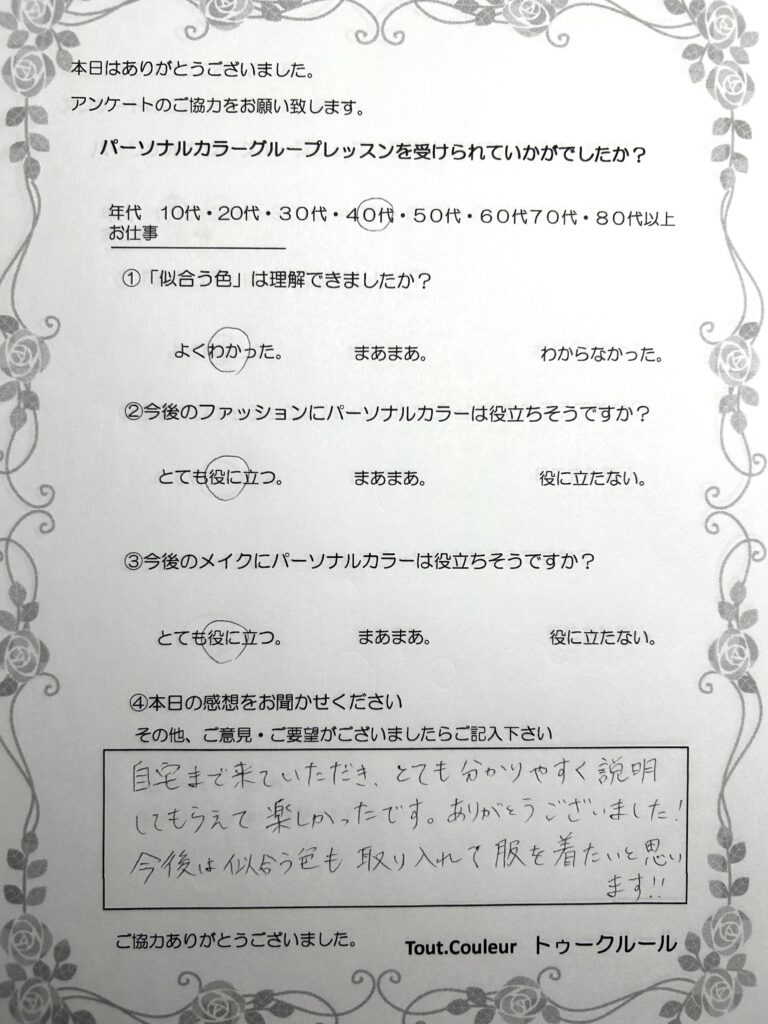 本日はありがとうございました。
アンケートのご協力をお願い致します。
パーソナルカラーグループレッスンを受けられていかがでしたか？
年代　10代・20代・３０代・４０代・５０代・６０代７０代・８０代以上
お仕事
①「似合う色」は理解できましたか？
よくわかった。　まあまあ。　わからなかった。
②今後のファッションにパーソナルカラーは役立ちそうですか？
とても役に立つ。　まあまあ。　役に立たない。
③今後のメイクにパーソナルカラーは役立ちそうですか？
とても役に立つ。　まあまあ。　役に立たない。
④本日の感想をお聞かせください
その他、ご意見・ご要望がございましたらご記入下さい
自宅まで来ていただき、とても分かりやすく説明
してもらえて楽しかったです。ありがとうございました！
今後は似合う色も取り入れて服を着たいと思い
ます!!
ご協力ありがとうございました。
Tout.Couleur　トゥークルール